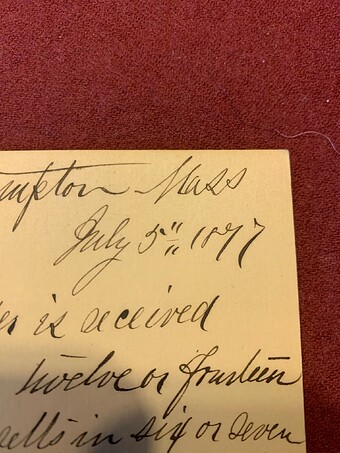 mpton Mass
July 5" 1877
is received
twelve or fourteen
sells in six or seven